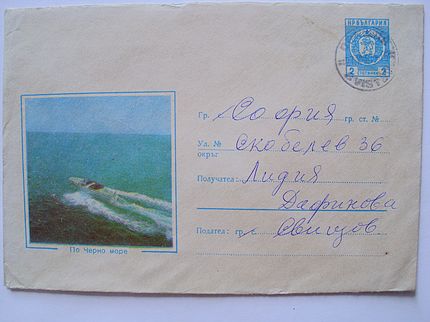 НР БЪЛГАРИЯ
2 2
SVIST
Гр. София гр. ст. №
Ул. № Скобелев 36
окръг
Получател: Лидия
Дафинова
Подател: гр. Свищов
По Черно море